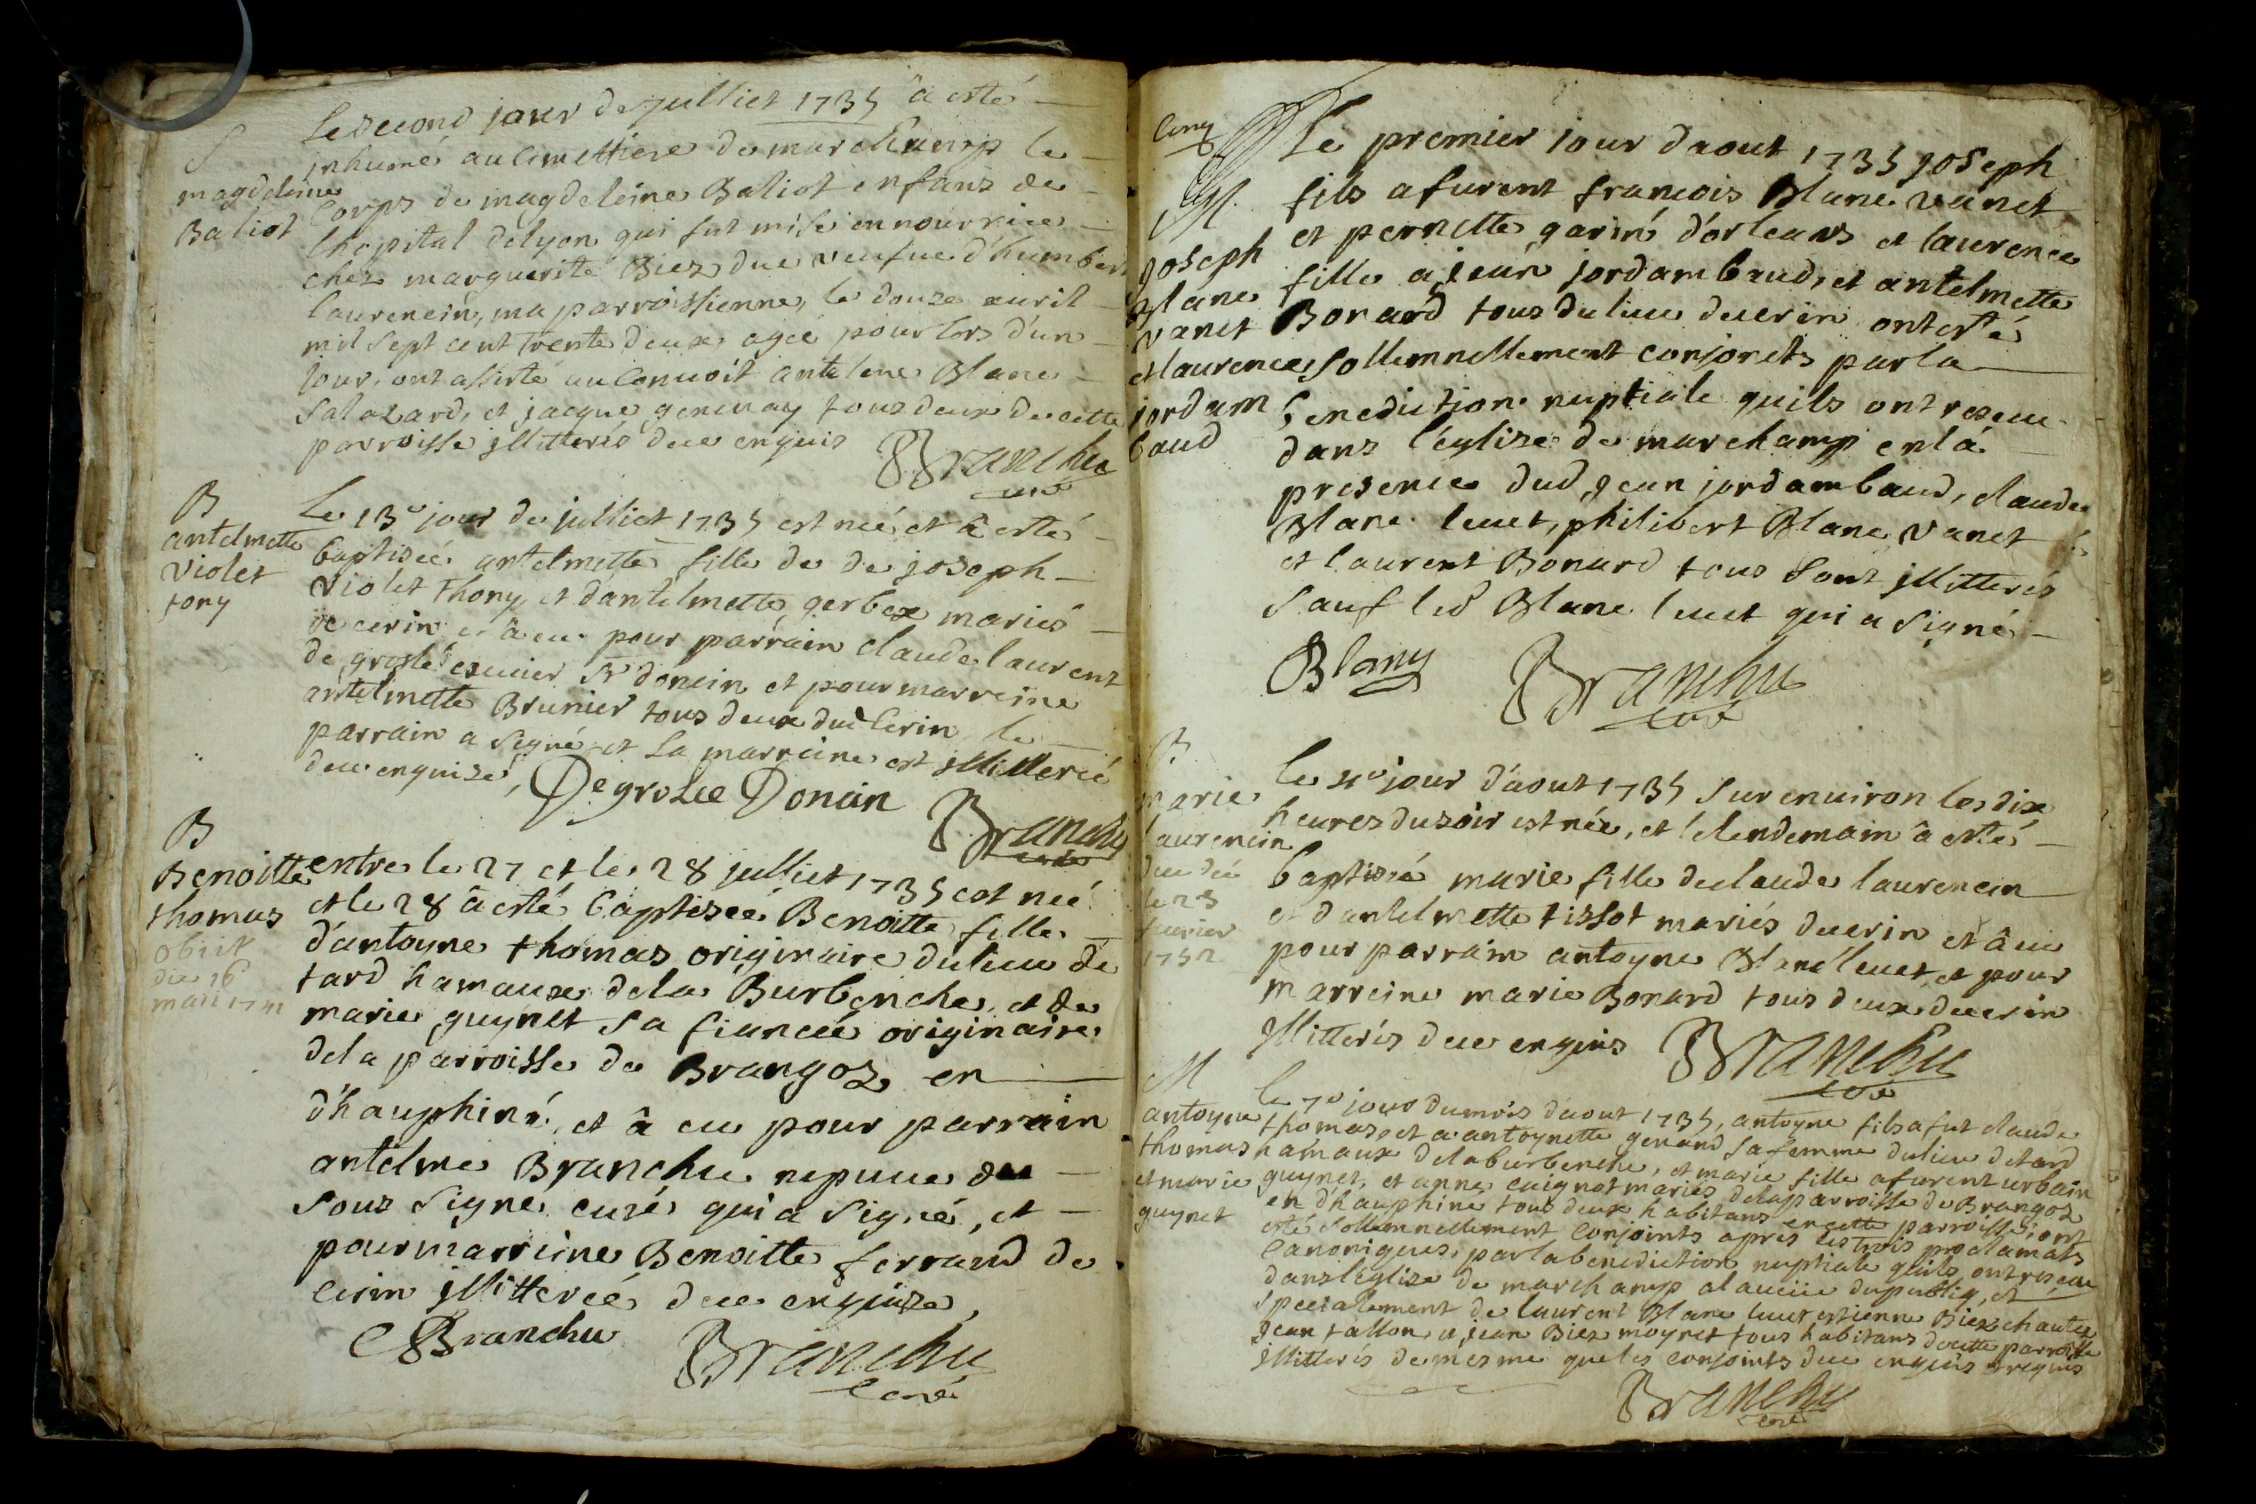 S
magdeleine
Baliot
Le second jour de julliet 1735 â esté
inhumé au cimettiere de marchamp le
corps de magdeleine Baliot enfans de
lhopital de lyon qui fut mise en nourrice
chez marguerite Biez due veufue d'humbert
laurencin, ma parroissienne, le douze auril
mil sept cent trente deux agée pour lors d'un
jour, ont assisté au conuoit antelme Blanc
salazard, et jacque genenay tous deux de cette
parroisse illitterés due enquis
Branchu
curé
B
antelmette
violet
tony
Le 13e jour de julliet 1735 est née et â esté
baptiseé antelmette fille de de joseph
violet thony et d'antelmette gerbex mariés
de cerin et â eu pour parrain claude laurent
de groslé ecuier Sr doncin et pour marreine
antelmette Brunier tous deux dud Cerin le
parrain a signé et la marreine est illitterée
due enquise,
Degrolee Doncin
Branchu
curé
B
Benoitte
thomas
obiit
die 16
maii 1741
entre le 27 et le 28 julliet 1735 est neé
et le 28 â esté baptiseé Benoitte fille
d'antoyne thomas originaire du lieu de
tard hamaux de la Burbenche, et de
marie guynet sa fiancée originaire
de la parroisse de Brangoz en
d'hauphiné, et â eu pour parrain
antelme Branchu nepueu du
sous signé curé qui a signé, et
pour marreine Benoitte ferrand de
cerin illitterée due enquise,
Branchu
Branchu
curé
cinq
M.
Joseph
Blanc
vanet
et laurence
jordam
baud
Le premier jour daout 1735 joseph
fils a furent francois Blanc vanet
et pernette garin d'orleans et laurence
fille a jean jordambaud, et antelmette
Bonard tous du lieu de cerin ont esté
sollemnellement conjoncts par la
benediction nuptiale quils ont receu
dans l'eglize de marchamp en la
presence dud jean jordambaud, claude
Blanc leuet, philibert Blanc vanet
et laurent Bonard tous sont illitterés
sauf led Blanc leuet qui a signé
Blanc
Branchu
curé
B.
marie
laurencin
decedé
le 23
feurier
1752
le 4e jour d'aout 1735 sur enuiron les dix
heures du soir est née, et le lendemain â esté
baptisée marie fille de claude laurencin
et d'antelmette tissot mariés de cerin et â eu
pour parrain antoyne Blanc leuet, et pour
marreine marie Bonard tous deux de cerin
illitterés due enquis
Branchu
curé
M
antoyne
thomas
et marie
guynet
le 7e jour du mois d'aout 1735, antoyne fils a fut claude
thomas, et a antoynette genand sa femme du lieu de tard
hamaux de la burbenche, et marie fille a furent urbain
guynet, et anne cuignot mariés de la parroisse de Brangoz
en d'hauphiné tous deux habitans en cette parroisse, ont
esté sollemnellement conjoints apres les trois proclamats
canoniques, par la benediction nuptiale quils ont receue
dans l'eglize de marchamp a la veüe du public, et
specialement de laurent Blanc leuet estienne Biez chautex
jean tallon, et jean Biez moynet tous habitans de cette parroisse
illitterés de mesme que les conjoints due enquis et requis
Branchu
curé